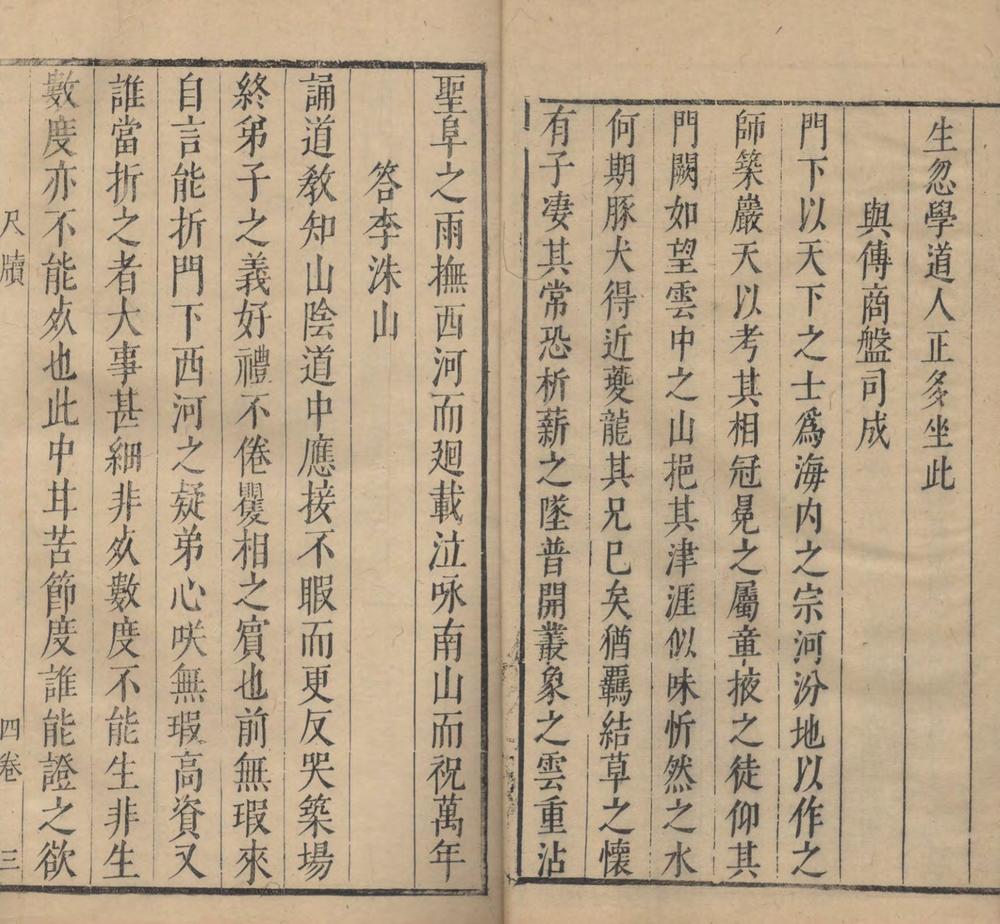 生忽學道人正多坐此
與傳商盤司成
門下以天下之士爲海内之宗河汾地以作之
師築巖天以考其相冠冕之屬童掖之徒仰其
門闕如望雲中之山挹其津涯似味忻然之水
何期豚犬得近夔龍其兄已矣猶羈結草之懷
有子凄其常恐析薪之墜普開叢象之雲重沾
聖阜之雨撫西河而廻載泣咏南山而祝萬年
答李洙山
誦道教知山陰道中應接不暇而更反哭築場
終弟子之義好禮不倦矍相之賓也前無瑕來
自言能折門下西河之疑弟心咲無瑕高資又
誰當折之者大事甚細非㸃數度不能生非生
數度亦不能㸃也此中甘苦節度誰能證之欲
尺牘 四卷 三